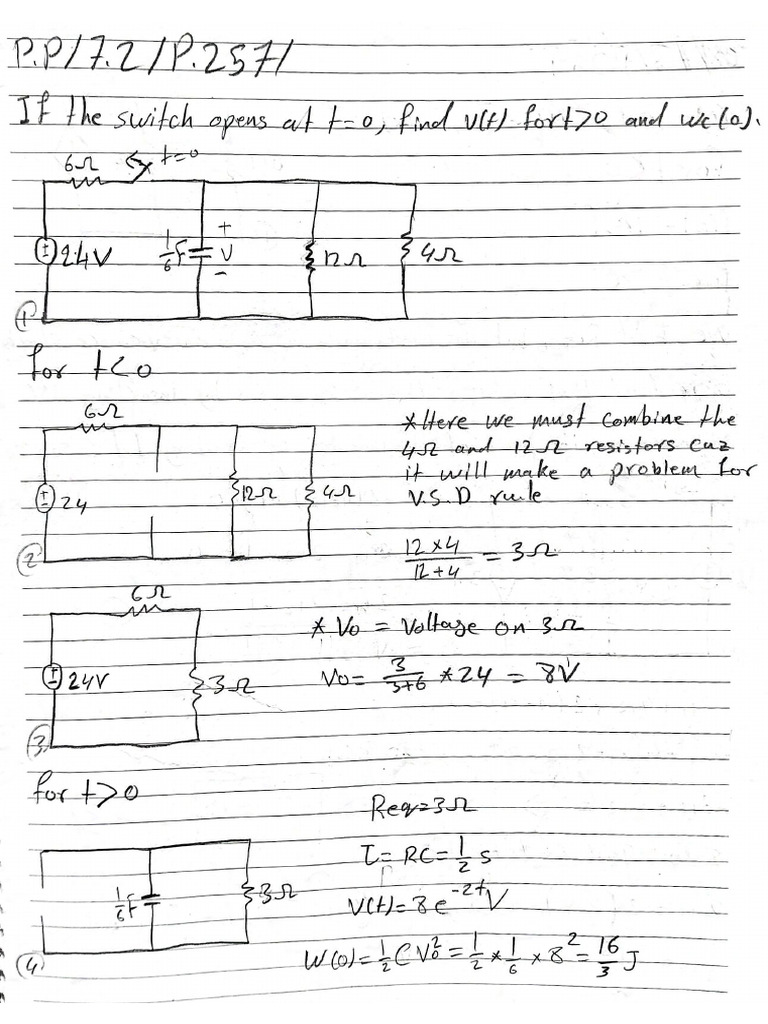 P.P/7.2/P.257/
If the switch opens at t=0, find v(t) for t>0 and wc(0).
6Ω t=0
24V 1/6F + V - 12Ω 4Ω
1
for t<0
6Ω
*Here we must combine the
4Ω and 12Ω resistors cuz
it will make a problem for
V.S.D rule
24 12Ω 4Ω
2
12×4/12+4 = 3Ω
6Ω
* Vo = Voltage on 3Ω
24V 3Ω Vo = 3/3+6 *24 = 8V
3
for t>0
Req=3Ω
τ = RC = 1/2 s
1/6F 3Ω
V(t)=8e^-2t V
4
W(0)=1/2 C Vo^2 = 1/2 * 1/6 × 8^2 = 16/3 J